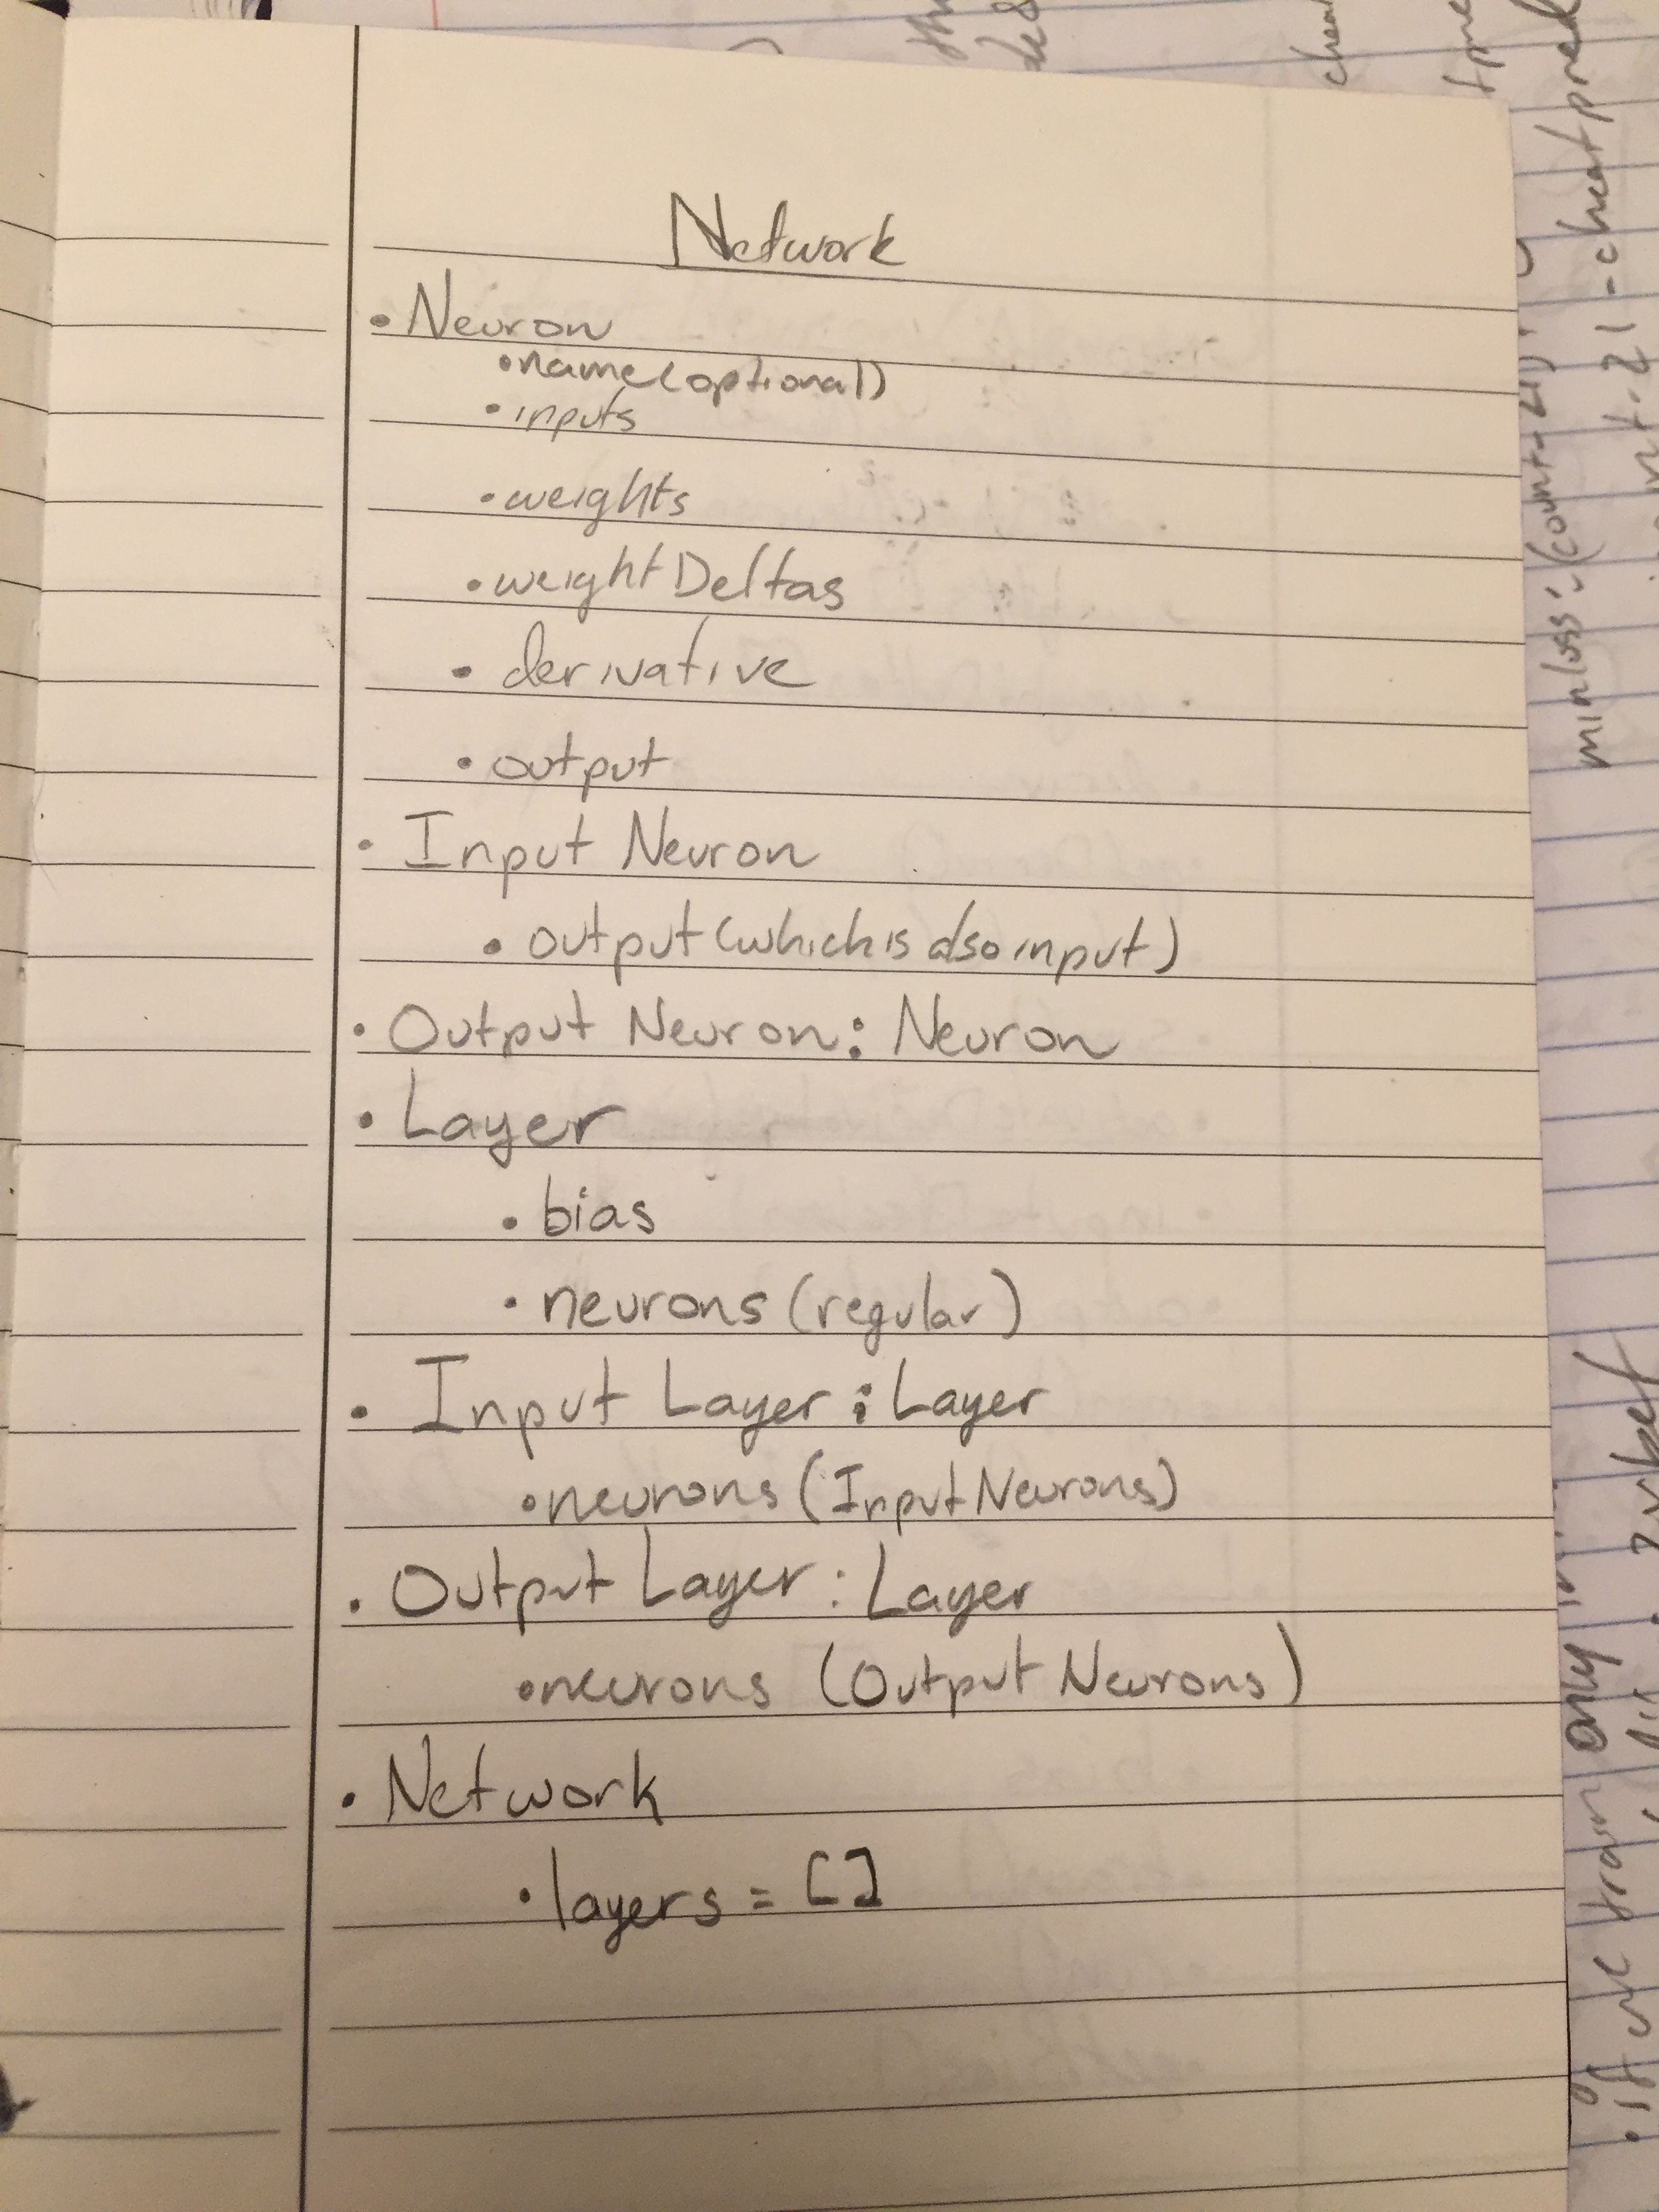 Network
• Neuron
• name (optional)
• inputs
• weights
• weightDeltas
• derivative
• output
• Input Neuron
• output (which is also input)
• Output Neuron: Neuron
• Layer
• bias
• neurons (regular)
• Input Layer: Layer
• neurons (Input Neurons)
• Output Layer: Layer
• neurons (Output Neurons)
• Network
• layers = []
minloss:
1 - cheat pred
• if we train only